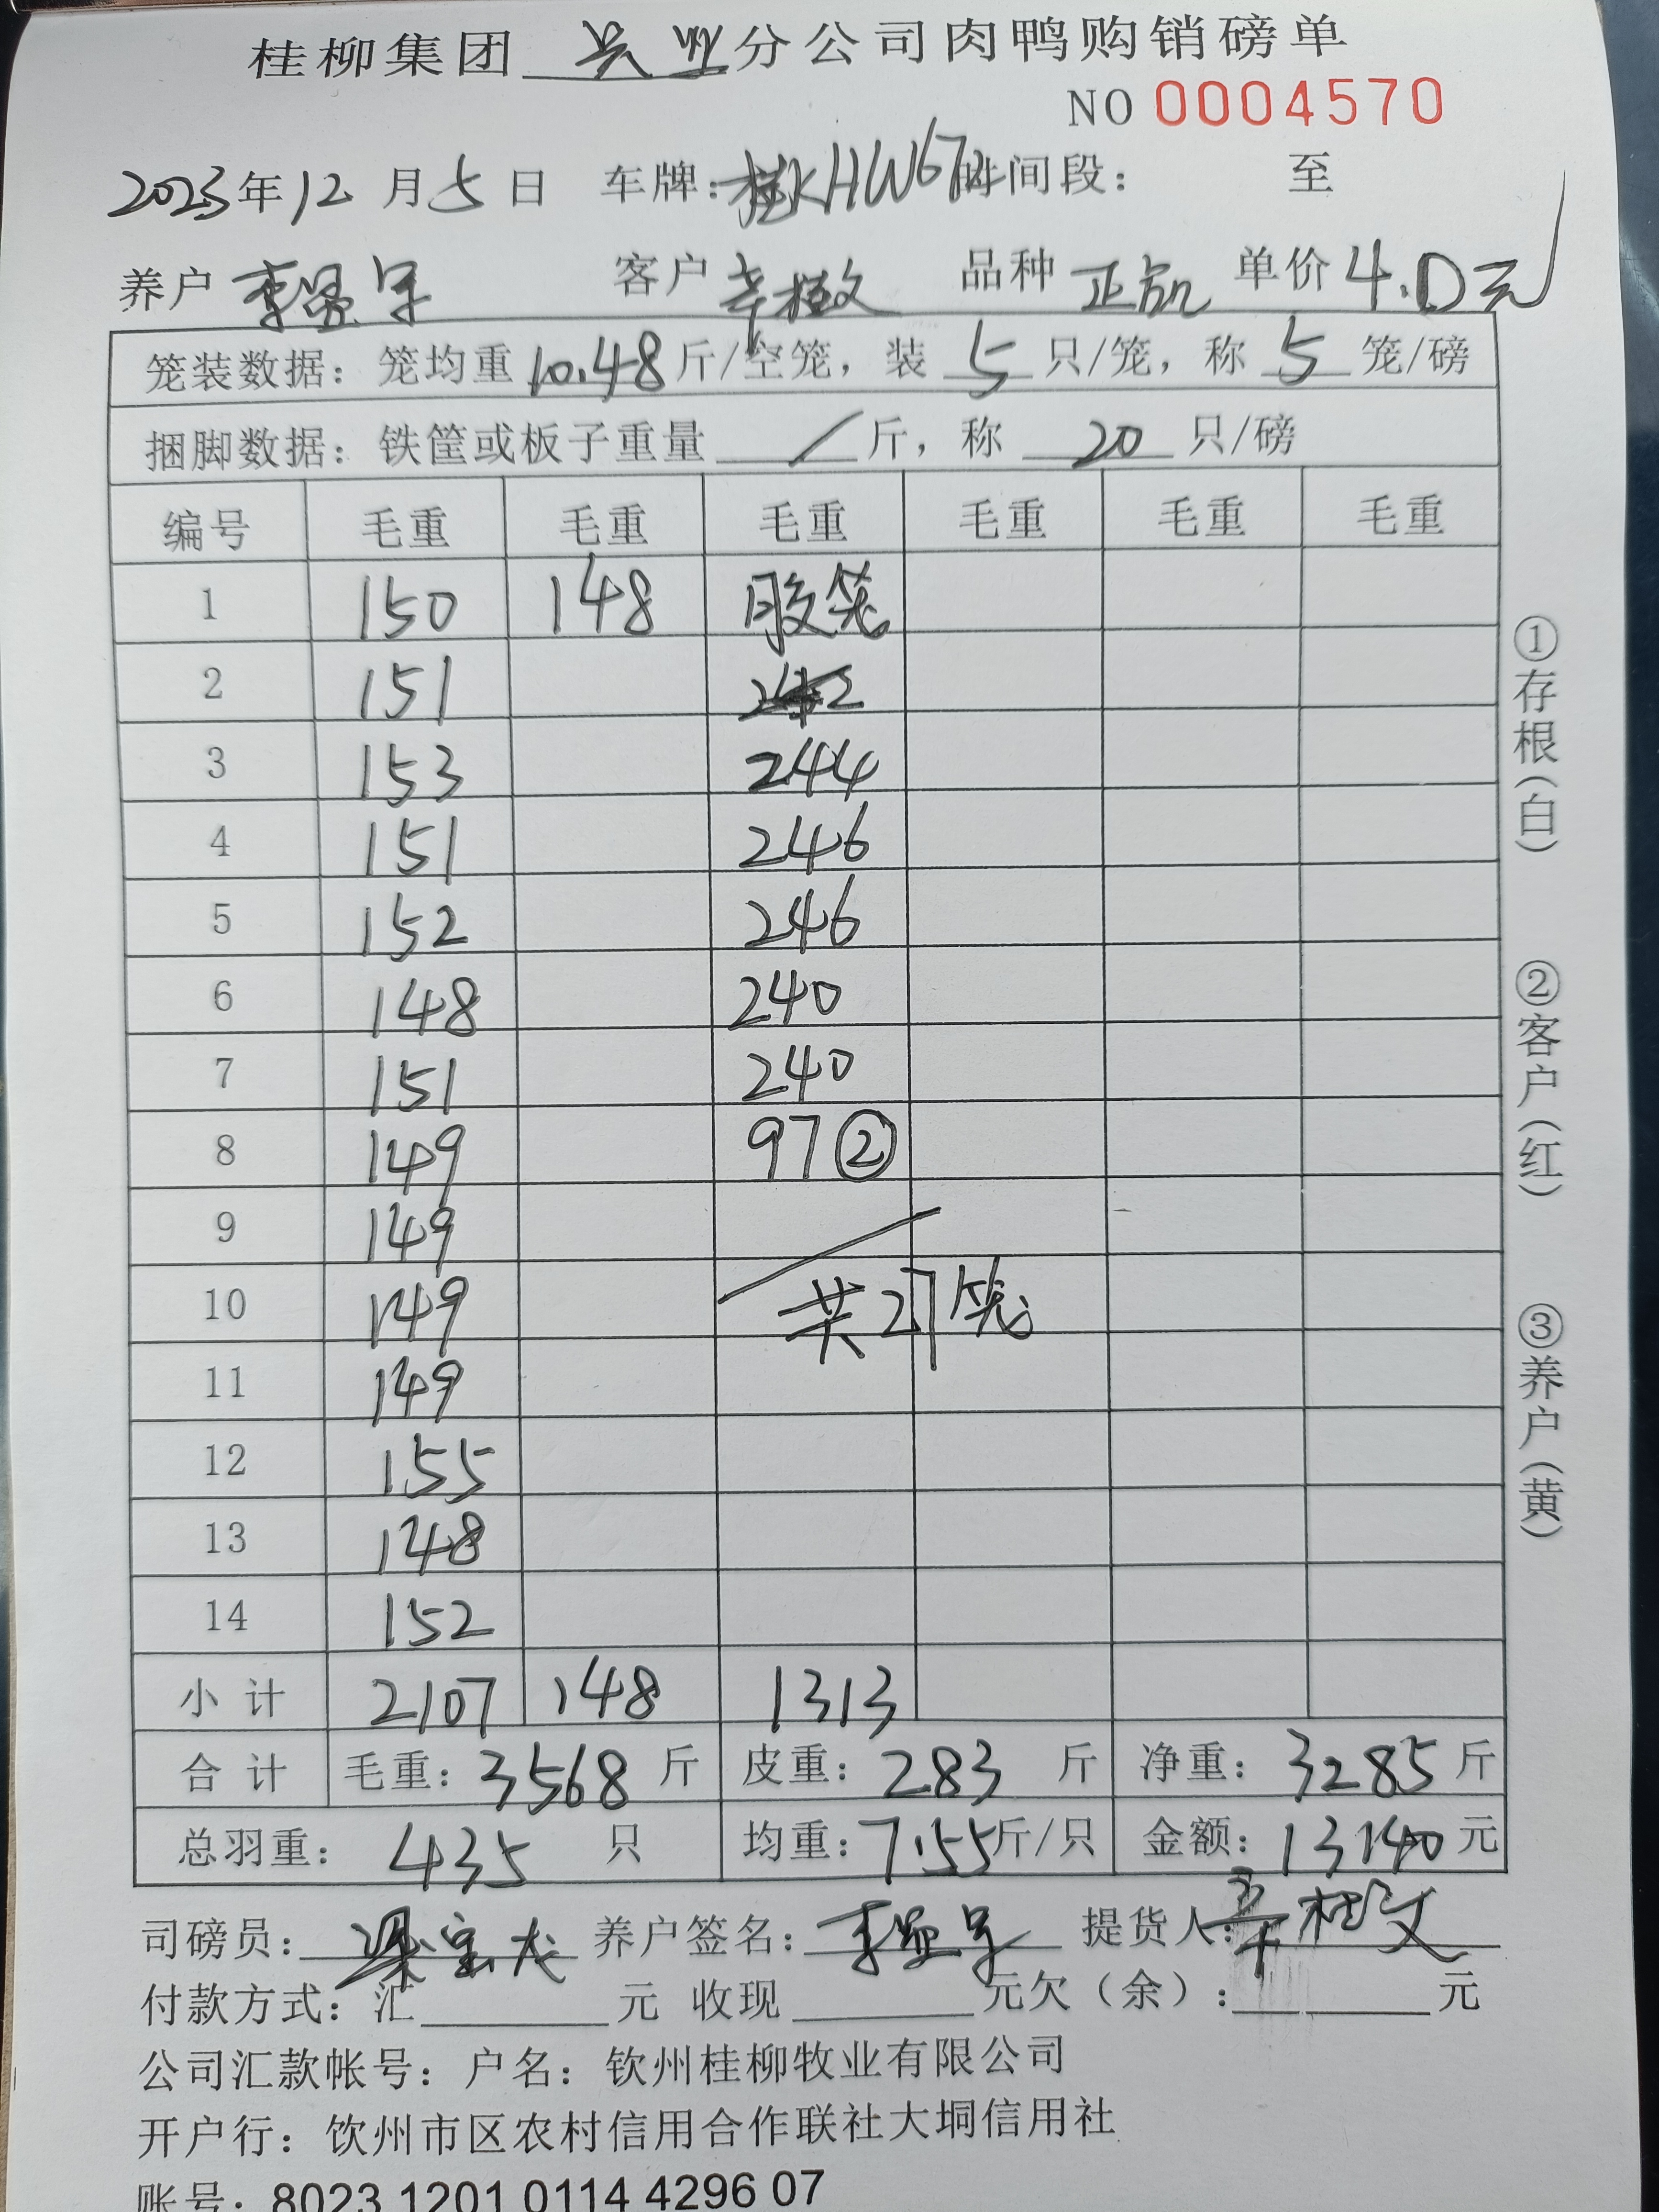 桂柳集团 兴业 分公司肉鸭购销磅单
NO 0004570
2023年12月5日 车牌:桂KHW67 时间段: 至
养户 李 客户 辛桂文 品种 正 单价 4.0元
笼装数据:笼均重 10.48 斤/空笼,装 5 只/笼,称 5 笼/磅
捆脚数据:铁筐或板子重量 / 斤,称 20 只/磅
编号 毛重 毛重 毛重 毛重 毛重 毛重
1 150 148 胶笼
2 151
3 153 244
4 151 246
5 152 246
6 148 240
7 151 240
8 149 97②
9 149
10 149 共27笼
11 149
12 155
13 148
14 152
小计 2107 148 1313
合计 毛重:3568 斤 皮重:283 斤 净重:3285 斤
总羽重:435 只 均重:7.55斤/只 金额:13140元
司磅员:梁宝龙 养户签名:李 提货人:辛桂文
付款方式:汇 元 收现 元欠(余): 元
公司汇款帐号:户名:钦州桂柳牧业有限公司
开户行:钦州市区农村信用合作联社大垌信用社
账号:8023 1201 0114 4296 07
①存根(白)
②客户(红)
③养户(黄)